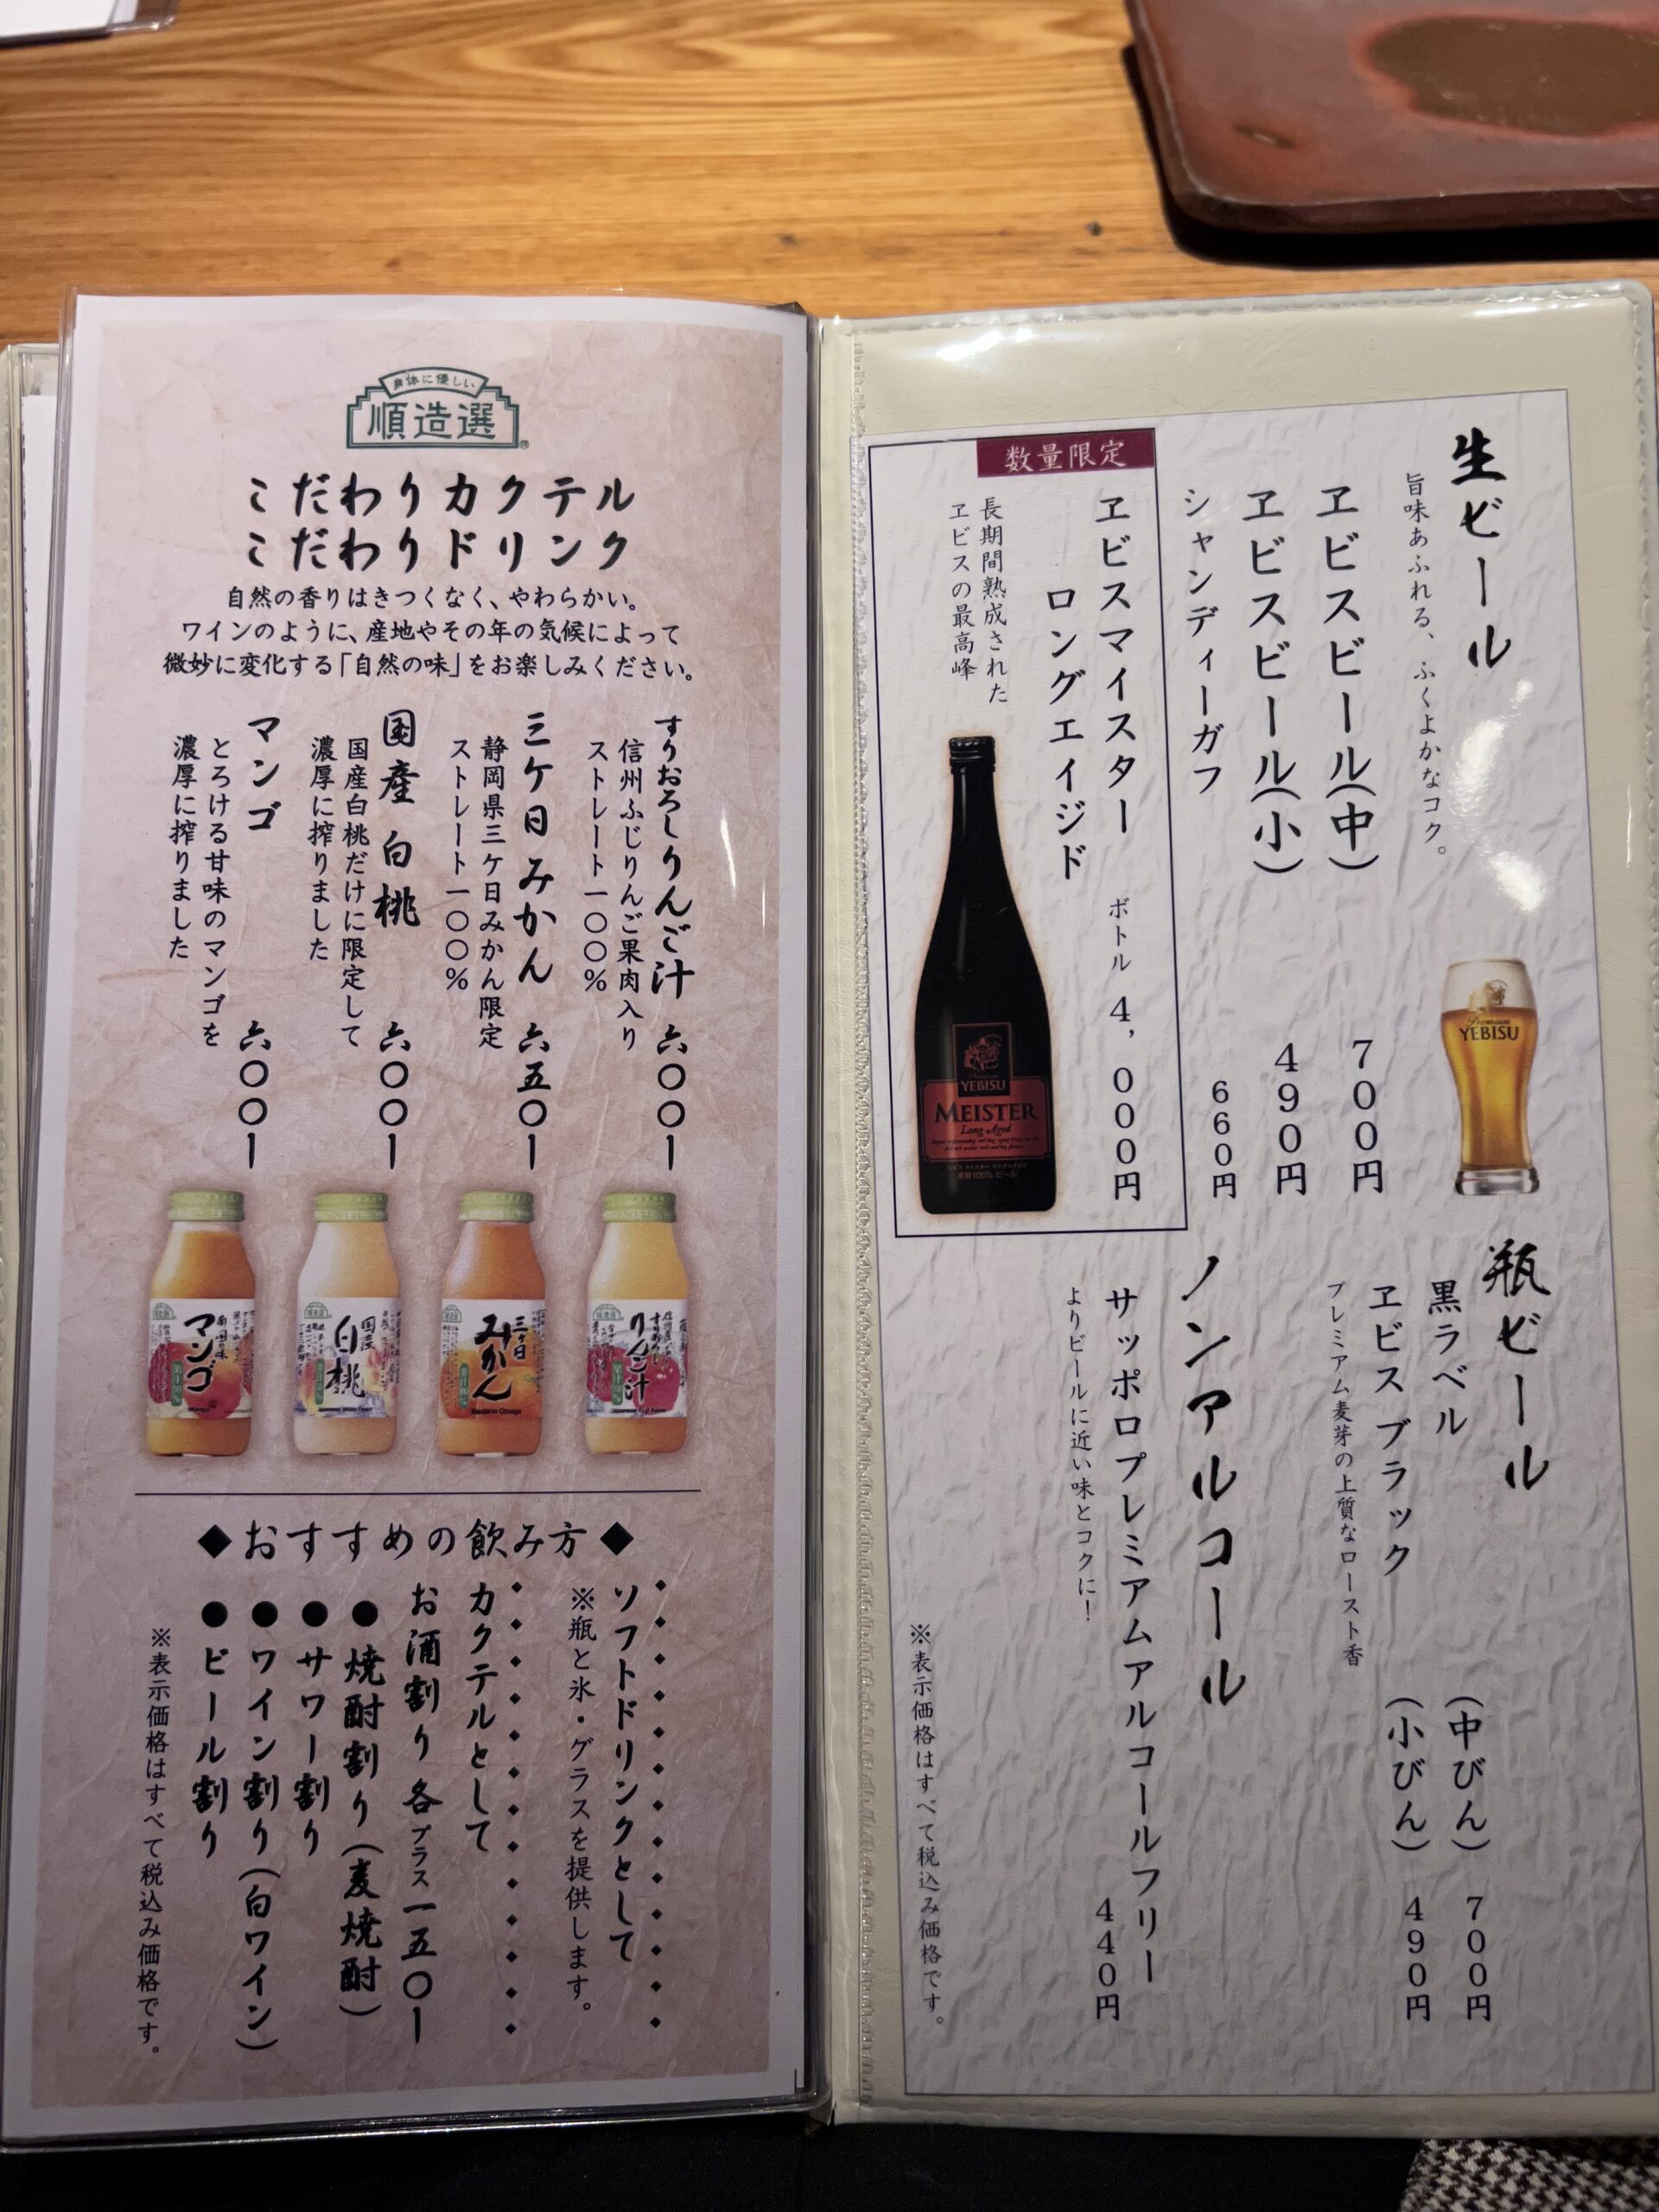 身体に優しい
順造選
こだわりカクテル
こだわりドリンク
自然の香りはきつくなく、やわらかい。
ワインのように、産地やその年の気候によって
微妙に変化する「自然の味」をお楽しみください。
すりおろしりんご汁 六〇〇ー
信州ふじりんご果肉入り
ストレート一〇〇%
三ケ日みかん 六五〇ー
静岡県三ケ日みかん限定
ストレート一〇〇%
国産 白桃 六〇〇ー
国産白桃だけに限定して
濃厚に搾りました
マンゴ 六〇〇ー
とろける甘味のマンゴを
濃厚に搾りました
マンゴ
国産
白桃
三ケ日
みかん
Mandarin Orange
すりおろし
りんご汁
◆おすすめの飲み方◆
ソフトドリンクとして
※瓶と氷・グラスを提供します。
カクテルとして
お酒割り 各プラス一五〇ー
●焼酎割り(麦焼酎)
●サワー割り
●ワイン割り(白ワイン)
●ビール割り
※表示価格はすべて税込み価格です。
生ビール
旨味あふれる、ふくよかなコク。
ヱビスビール(中) 700円
ヱビスビール(小) 490円
シャンディーガフ 660円
Premium
YEBISU
数量限定
ヱビスマイスター
ロングエイジド
ボトル 4,000円
長期間熟成された
ヱビスの最高峰
YEBISU
MEISTER
Long Aged
瓶ビール
黒ラベル (中びん) 700円
ヱビス ブラック (小びん) 490円
プレミアム麦芽の上質なロースト香
ノンアルコール
サッポロプレミアムアルコールフリー
440円
よりビールに近い味とコクに!
※表示価格はすべて税込み価格です。